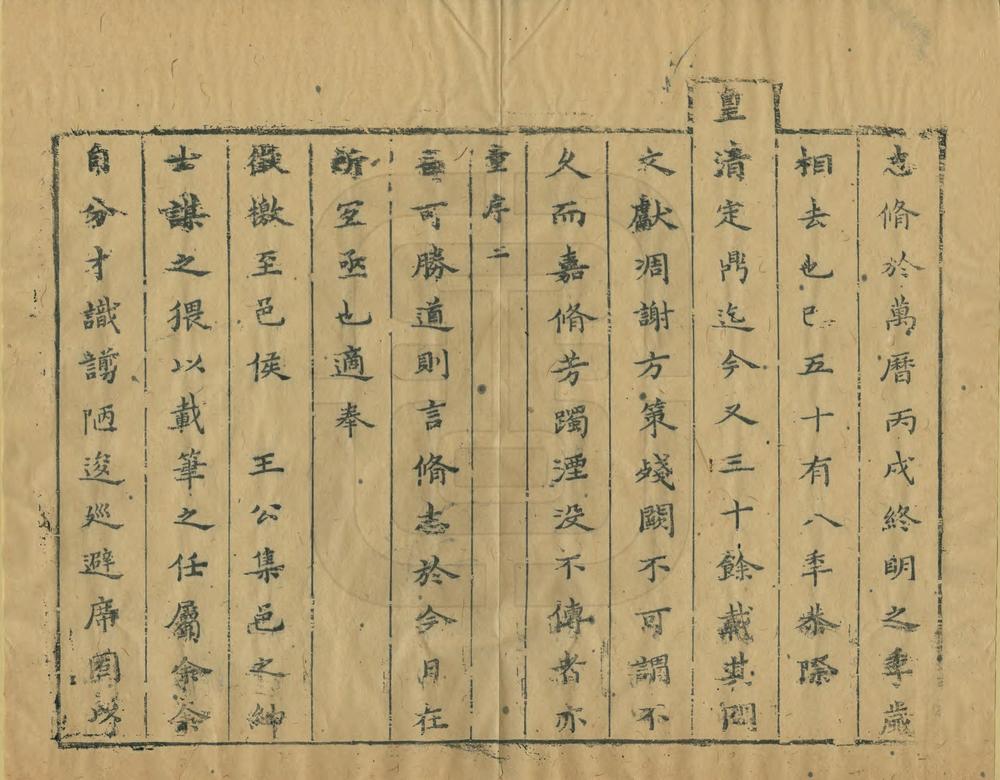 志脩於萬曆丙戌終明之季歲
相去也已五十有八年恭際
皇清定鼎迄今又三十餘載其間
文獻凋謝方策殘闕不可謂不
久而嘉脩芳躅湮没不傳者亦
童序 二
可勝道則言脩志於今日在
所宜亟也適奉
徵檄至邑侯 王公集邑之紳
士謀之猥以載筆之任屬余余
自分才識譾陋逡廵避席固以